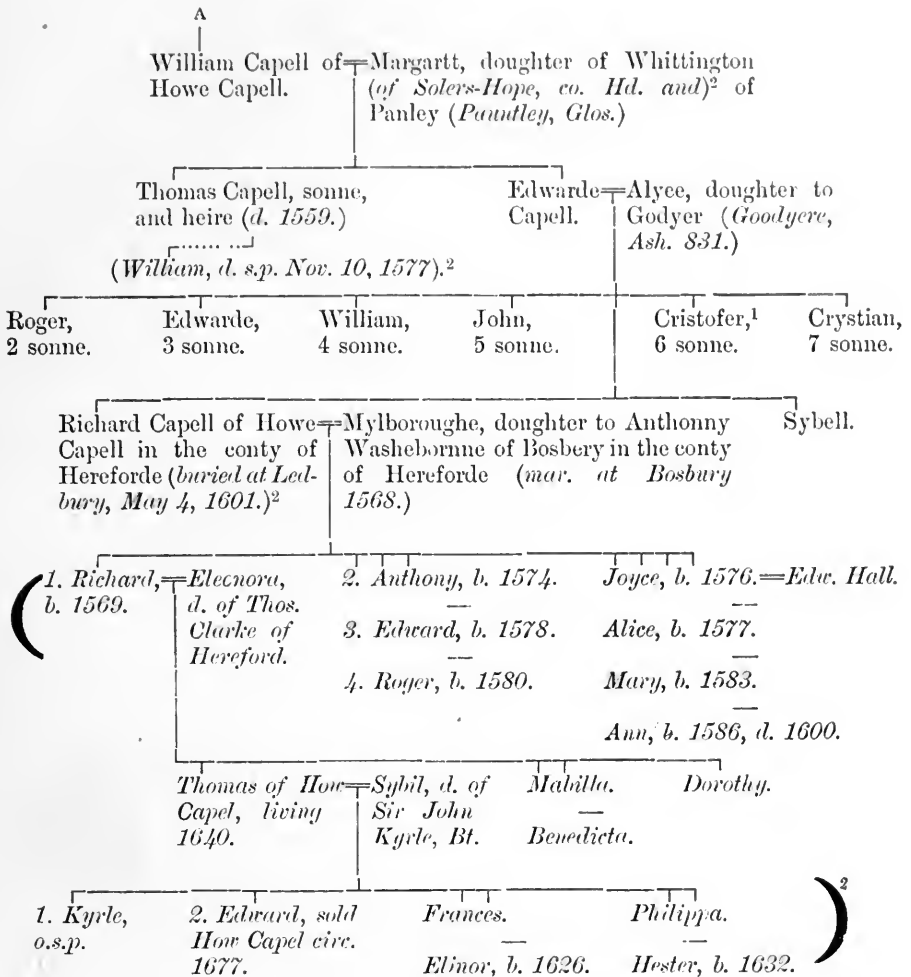 A
William Capell of Howe Capell.
Margartt, doughter of Whittington (of Solers-Hope, co. Hd. and)² of Panley (Pauntley, Glos.)
Thomas Capell, sonne, and heire (d. 1559.)
Edwarde Capell.
Alyce, doughter to Godyer (Goodyere, Ash. 831.)
(William, d. s.p. Nov. 10, 1577).²
Roger, 2 sonne.
Edwarde, 3 sonne.
William, 4 sonne.
John, 5 sonne.
Cristofer,¹ 6 sonne.
Crystian, 7 sonne.
Richard Capell of Howe Capell in the conty of Hereforde (buried at Led-bury, May 4, 1601.)²
Mylboroughe, doughter to Anthonny Washebornne of Bosbery in the conty of Hereforde (mar. at Bosbury 1568.)
Sybell.
(1. Richard, b. 1569.
Elecnora, d. of Thos. Clarke of Hereford.
2. Anthony, b. 1574.
—
3. Edward, b. 1578.
—
4. Roger, b. 1580.
Joyce, b. 1576.=Edw. Hall.
—
Alice, b. 1577.
—
Mary, b. 1583.
—
Ann, b. 1586, d. 1600.
Thomas of How Capel, living 1640.
Sybil, d. of Sir John Kyrle, Bt.
Mabilla.
—
Benedicta.
Dorothy.
1. Kyrle, o.s.p.
2. Edward, sold How Capel circ. 1677.
Frances.
—
Elinor, b. 1626.
Philippa.
—
Hester, b. 1632.
)²